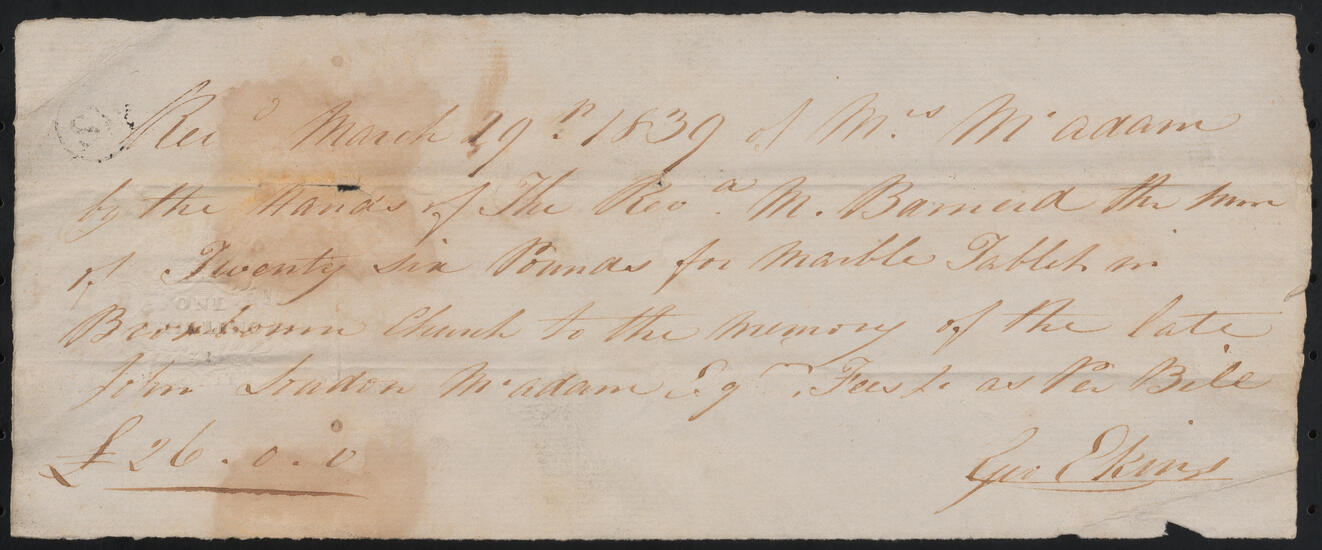 Recd March 29th 1839 of Mrs McAdam
by the Hands of The Revd M. Barnerd the Sum
of Twenty Six Pounds for Marble Tablet in
Broxbourn Church to the Memory of the late
John Loudon McAdam Esqre Fees &c as Per Bill
£26.0.0
Geo Ekins